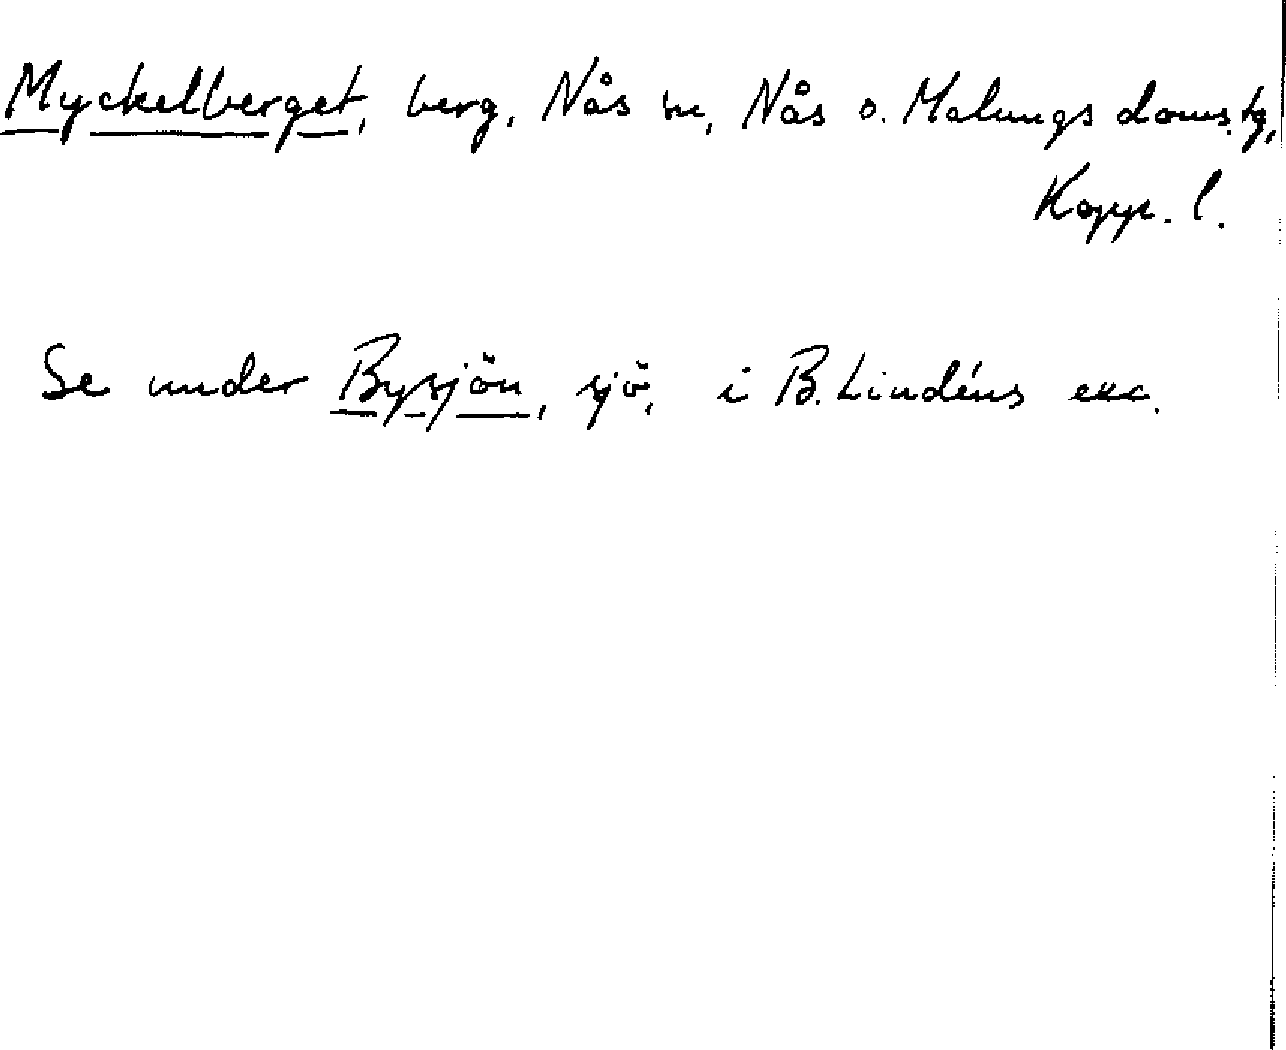 Myckelberget, berg, Nås sn, Nås o. Malungs doms.tg,
Kopp. l.
Se under Bysjön, sjö, i B. Lindéns exc.